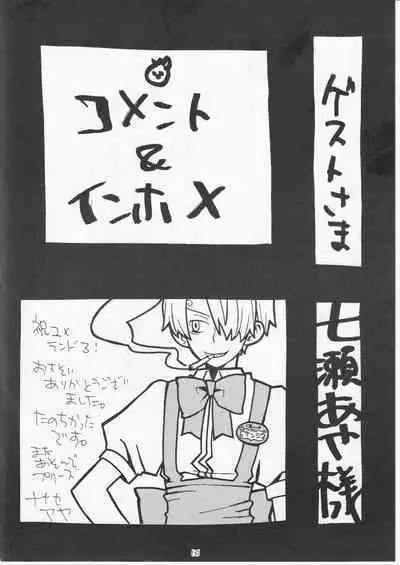 ゲストさま
コメント
&
インホメ
七瀬あや様
祝ユメ
ランド3!
おさそい
ありがとうござい
ました。
たのちかった
です。
また
あそんで
プリーズ
ナナセ
アヤ